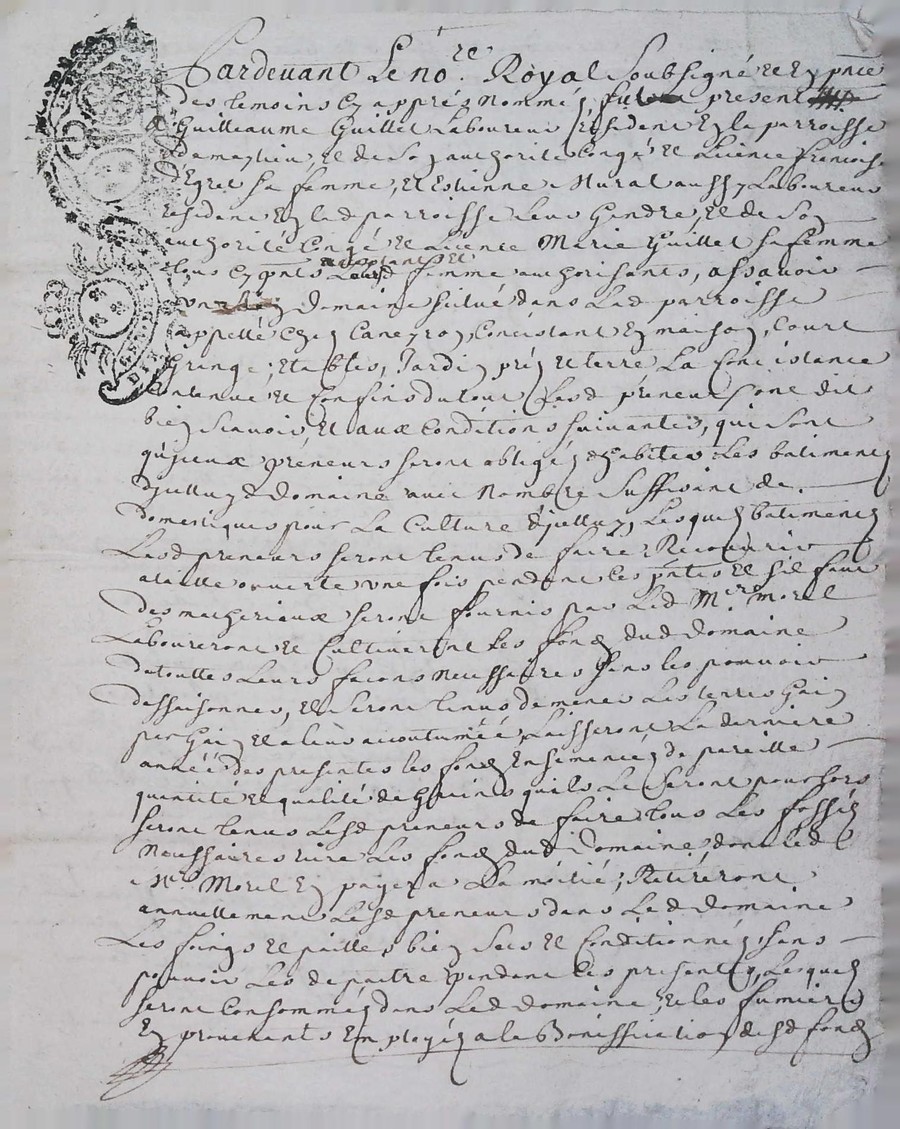 Pardevant Le no.re Royal Soubsigné et En pnce
des temoins Cy apprés Nommé, fu present
Guilleaume Guillet Laboureur résident En la parroisse
et de Son authorité Congé et Licence francoise
Egret Sa femme, et Estienne Mural aussy Laboureur
résident En lad parroisse Leur Gendre, et de Son
authorité Congé et Licence Marie Guillet Sa femme
tous Cy pnts acceptants et Leursd femme authorisants, assavoir
un domaine situé dans Lad parroisse
appellé Consistant En maison, Court
Grange, Etables, Jardin, prés et terre La Concistance
Contenue et Confins du tout Lesd préneurs ont dit
bien Scavoir, et aux Conditions suivantes, qui sont
qu'jceux préneurs seront obligés d'habiter Les batiments
d'jelluy d domaine avec Nombre Suffisant de
domestiques pour La Culture d'jelluy, Lesquels batiments
Lesd preneurs seront tenus de faire Recouvrir
a taille ouverte une fois pendant les pntes et sil faut
des matheriaux seront fournis par Led Mr. Morel
Laboureront et Cultiveront les fonds dud Domaine
de touttes Leurs facons Neussaires sans les pouvoir
dessaisonner, et seront tenus de mener Les terres Gain
par Gain et a lieu accoutumée, Laisseront La derniere
année des presentes les fonds Ensemencés de pareille
quantité et qualité de Grains quils Le seront pour Lors
seront tenus Lesd preneurs de faire tous Les fossés
Neussaires rire Les fonds dud Domaine dont led
Mr. Morel En payera La moitié, Retireront
annuellement Lesd preneurs dans Led domaine
Les foings et pailles bien Secs et Conditionnés, sans
pouvoir Les depaitre pendant les presentes, Lesquels
seront Consommés dans Led domaine, et les fumiers
En provenants Employés a la Bonissication desd fonds